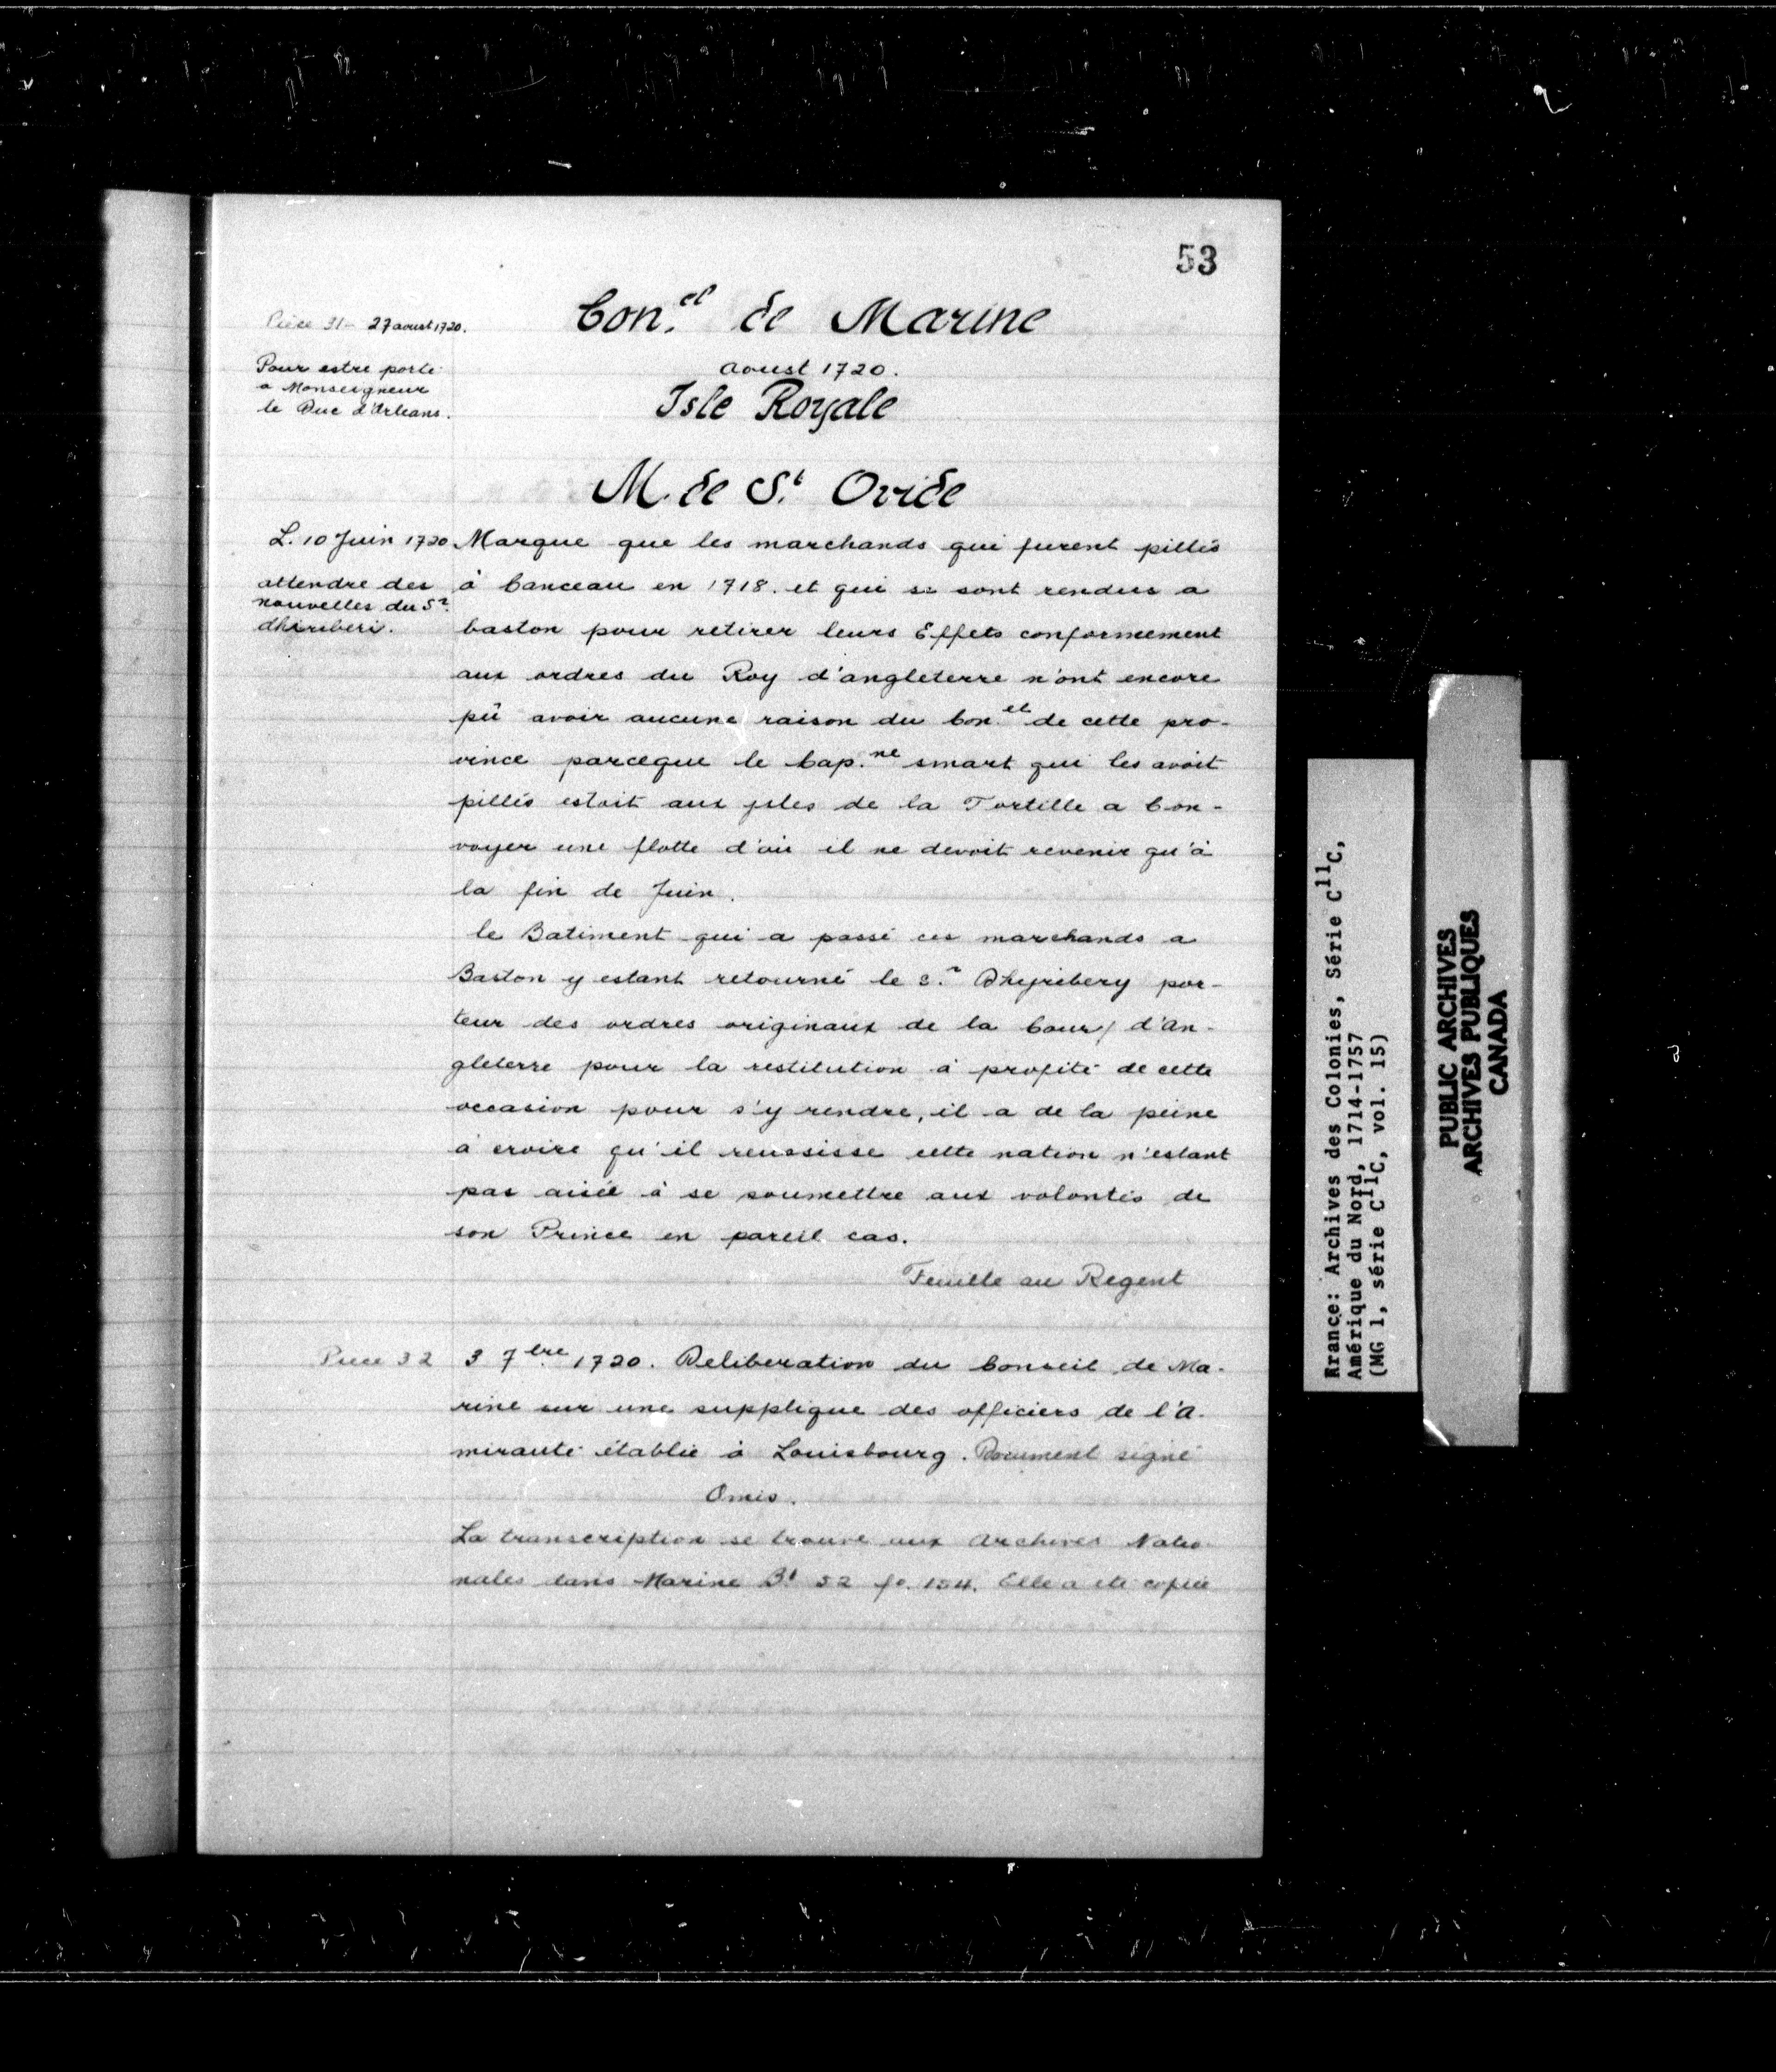 53
Con.el de Marine
Pièce 31 - 27 aoust 1720.
aoust 1720.
Pour estre porté
a Monseigneur
le Duc d'Orleans.
Isle Royale
M. de St Ovide
L. 10 Juin 1720 Marque que les marchands qui furent pillés
attendre des
nouvelles du Sr
dhiriberi.
à Canceau en 1718. et qui se sont rendus a
baston pour retirer leurs Effets conformement
aux ordres du Roy d'angleterre n'ont encore
pû avoir aucune raison du Con.el de cette pro-
vince parceque le Cap.ne smart qui les avoit
pillés estoit aux jsles de la Tortille a Con-
voyer une flotte d'où il ne devoit revenir qu'à
la fin de Juin.
le Batiment qui a passé ces marchands a
Baston y estant retourné le S.r Dhyribery por-
teur des ordres originaux de la Cour d'an-
gleterre pour la restitution à profité de cette
occasion pour s'y rendre, il a de la peine
à croire qu'il reussisse cette nation n'estant
pas aisée à se soumettre aux volontés de
son Prince en pareil cas.
Feuille au Regent
Piece 32
3 7bre 1720. Deliberation du Conseil de Ma-
rine sur une supplique des officiers de l'A-
mirauté établie à Louisbourg. Document signé
Omis.
La transcription se trouve aux Archives Natio-
nales dans Marine B1 52 fo. 154. Elle a été copiée
Rrance: Archives des Colonies, Série C11C,
Amérique du Nord, 1714-1757
(MG 1, série C11C, vol. 15)
PUBLIC ARCHIVES
ARCHIVES PUBLIQUES
CANADA